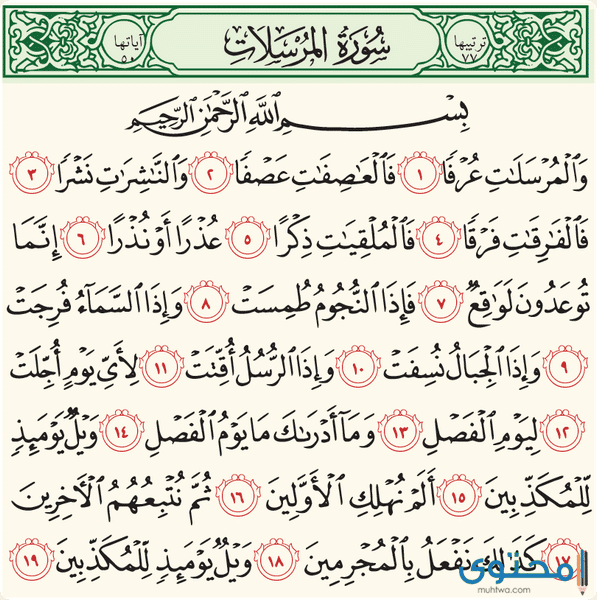 ترتيبها ٧٧ سُورَةُ الْمُرْسَلَاتِ آياتها ٥٠
بِسْمِ اللَّهِ الرَّحْمَٰنِ الرَّحِيمِ
وَالْمُرْسَلَاتِ عُرْفًا ١ فَالْعَاصِفَاتِ عَصْفًا ٢ وَالنَّاشِرَاتِ نَشْرًا ٣
فَالْفَارِقَاتِ فَرْقًا ٤ فَالْمُلْقِيَاتِ ذِكْرًا ٥ عُذْرًا أَوْ نُذْرًا ٦ إِنَّمَا
تُوعَدُونَ لَوَاقِعٌ ٧ فَإِذَا النُّجُومُ طُمِسَتْ ٨ وَإِذَا السَّمَاءُ فُرِجَتْ
٩ وَإِذَا الْجِبَالُ نُسِفَتْ ١٠ وَإِذَا الرُّسُلُ أُقِّتَتْ ١١ لِأَيِّ يَوْمٍ أُجِّلَتْ
١٢ لِيَوْمِ الْفَصْلِ ١٣ وَمَا أَدْرَاكَ مَا يَوْمُ الْفَصْلِ ١٤ وَيْلٌ يَوْمَئِذٍ
لِّلْمُكَذِّبِينَ ١٥ أَلَمْ نُهْلِكِ الْأَوَّلِينَ ١٦ ثُمَّ نُتْبِعُهُمُ الْآخِرِينَ
١٧ كَذَٰلِكَ نَفْعَلُ بِالْمُجْرِمِينَ ١٨ وَيْلٌ يَوْمَئِذٍ لِّلْمُكَذِّبِينَ ١٩
محتوى
muhtwa.com